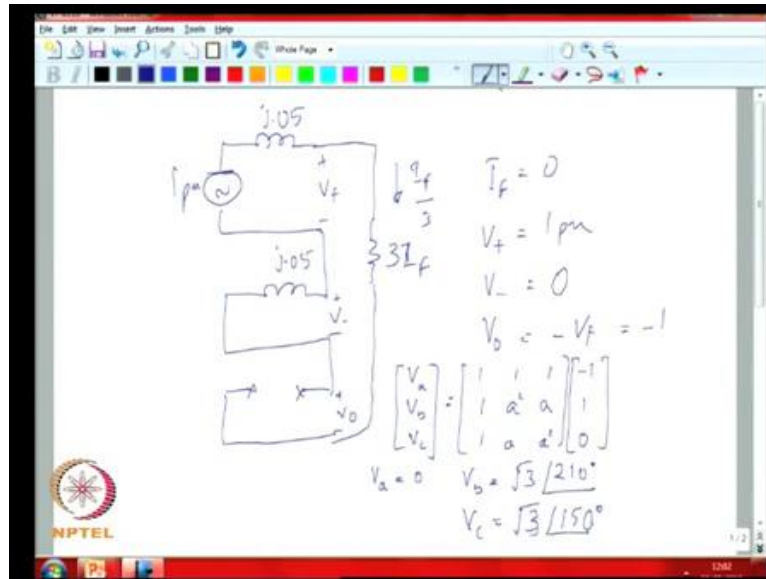 File Edit View Insert Actions Tools Help
Whole Page
B I
j.05
1pu
V+
-
+
If/3
3Zf
If = 0
V+ = 1 pu
V- = 0
V0 = -VF = -1
j.05
+
V-
-
+
V0
-
[Va Vb Vc] = [1 1 1; 1 a² a; 1 a a²] [-1 1 0]
Va = 0 Vb = √3 /210°
Vc = √3 /150°
NPTEL
1/2
12:02